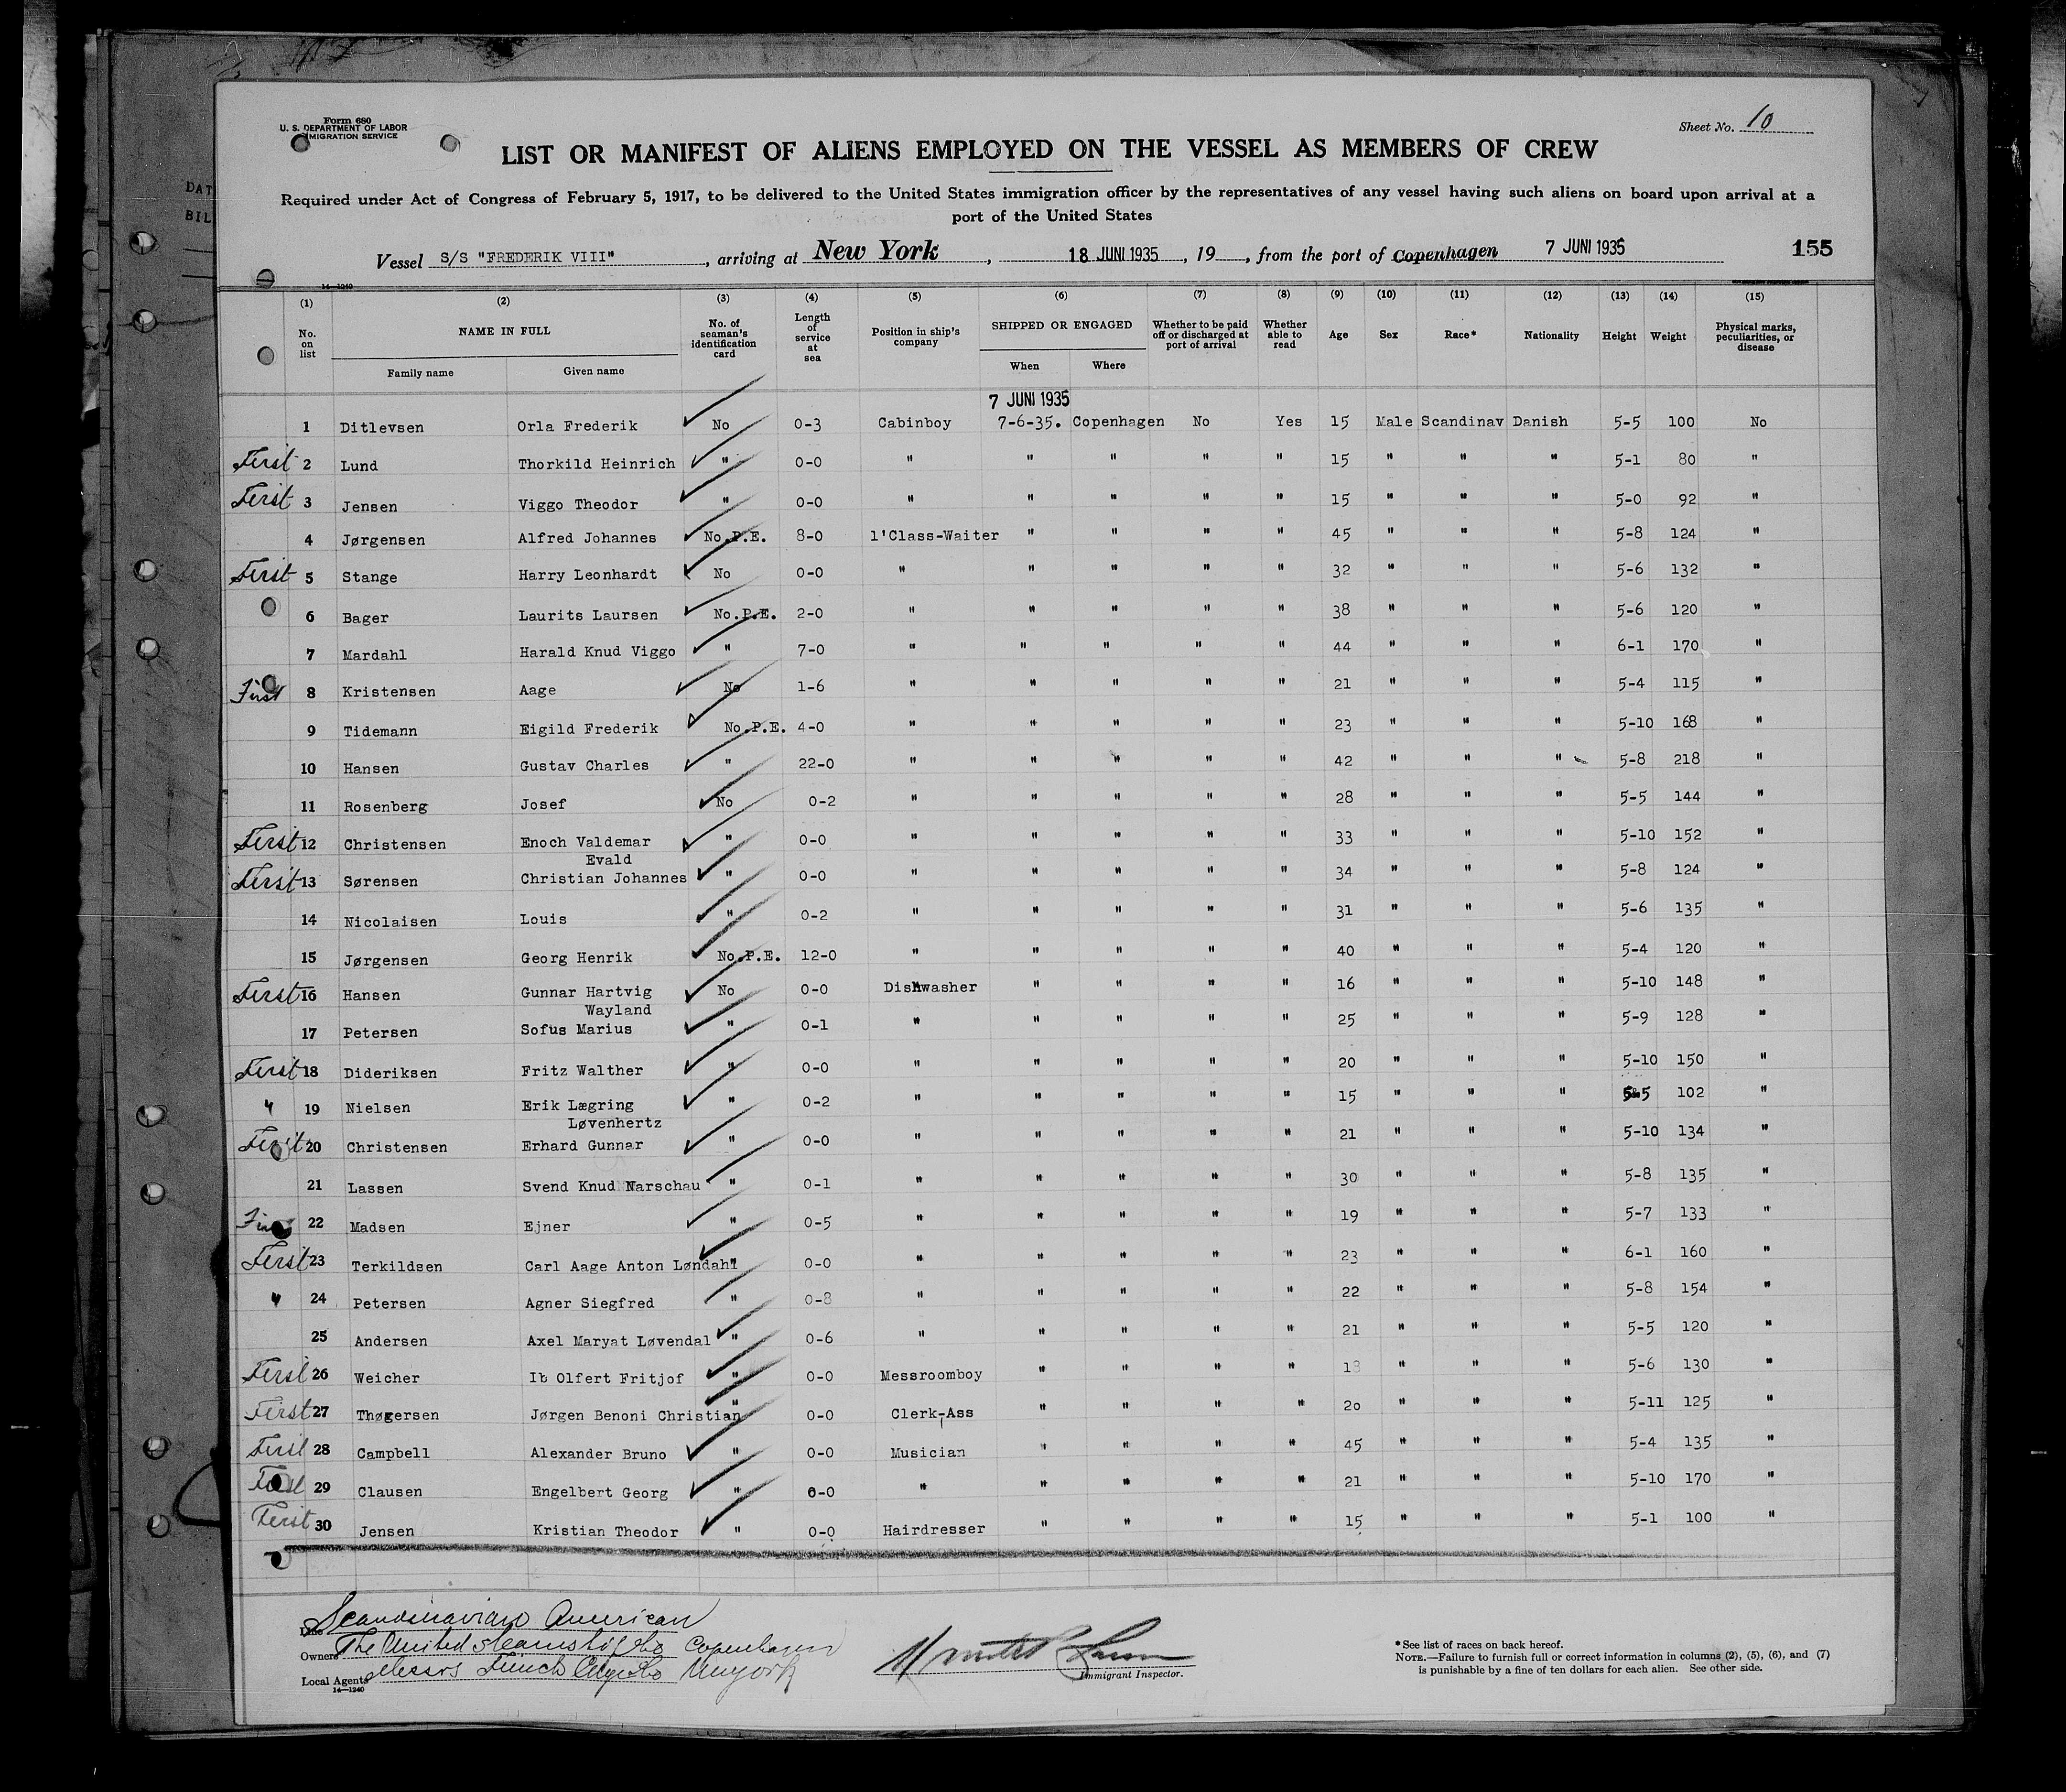 Form 680
U. S. DEPARTMENT OF LABOR
IMMIGRATION SERVICE
Sheet No. 10
LIST OR MANIFEST OF ALIENS EMPLOYED ON THE VESSEL AS MEMBERS OF CREW
Required under Act of Congress of February 5, 1917, to be delivered to the United States immigration officer by the representatives of any vessel having such aliens on board upon arrival at a
port of the United States
Vessel S/S "FREDERIK VIII", arriving at New York, 18 JUNI 1935, 19, from the port of Copenhagen 7 JUNI 1935 155
14—1240
(1) (2) (3) (4) (5) (6) (7) (8) (9) (10) (11) (12) (13) (14) (15)
No. on list NAME IN FULL Family name Given name No. of seaman's identification card Length of service at sea Position in ship's company SHIPPED OR ENGAGED When Where Whether to be paid off or discharged at port of arrival Whether able to read Age Sex Race* Nationality Height Weight Physical marks, peculiarities, or disease
7 JUNI 1935
1 Ditlevsen Orla Frederik No 0-3 Cabinboy 7-6-35. Copenhagen No Yes 15 Male Scandinav Danish 5-5 100 No
First 2 Lund Thorkild Heinrich " 0-0 " " " " " 15 " " " 5-1 80 "
First 3 Jensen Viggo Theodor " 0-0 " " " " " 15 " " " 5-0 92 "
4 Jørgensen Alfred Johannes No.P.E. 8-0 1'Class-Waiter " " " " 45 " " " 5-8 124 "
First 5 Stange Harry Leonhardt No 0-0 " " " " " 32 " " " 5-6 132 "
6 Bager Laurits Laursen No.P.E. 2-0 " " " " " 38 " " " 5-6 120 "
7 Mardahl Harald Knud Viggo " 7-0 " " " " " 44 " " " 6-1 170 "
First 8 Kristensen Aage No 1-6 " " " " " 21 " " " 5-4 115 "
9 Tidemann Eigild Frederik No.P.E. 4-0 " " " " " 23 " " " 5-10 168 "
10 Hansen Gustav Charles " 22-0 " " " " " 42 " " " 5-8 218 "
11 Rosenberg Josef No 0-2 " " " " " 28 " " " 5-5 144 "
First 12 Christensen Enoch Valdemar " 0-0 " " " " " 33 " " " 5-10 152 "
Evald
First 13 Sørensen Christian Johannes " 0-0 " " " " " 34 " " " 5-8 124 "
14 Nicolaisen Louis " 0-2 " " " " " 31 " " " 5-6 135 "
15 Jørgensen Georg Henrik No.P.E. 12-0 " " " " " 40 " " " 5-4 120 "
First 16 Hansen Gunnar Hartvig No 0-0 Dishwasher " " " " 16 " " " 5-10 148 "
Wayland
17 Petersen Sofus Marius " 0-1 " " " " " 25 " " " 5-9 128 "
First 18 Dideriksen Fritz Walther " 0-0 " " " " " 20 " " " 5-10 150 "
" 19 Nielsen Erik Lægring " 0-2 " " " " " 15 " " " 5-5 102 "
Løvenhertz
First 20 Christensen Erhard Gunnar " 0-0 " " " " " 21 " " " 5-10 134 "
21 Lassen Svend Knud Narschau " 0-1 " " " " " 30 " " " 5-8 135 "
First 22 Madsen Ejner " 0-5 " " " " " 19 " " " 5-7 133 "
First 23 Terkildsen Carl Aage Anton Løndahl " 0-0 " " " " " 23 " " " 6-1 160 "
" 24 Petersen Agner Siegfred " 0-8 " " " " " 22 " " " 5-8 154 "
25 Andersen Axel Maryat Løvendal " 0-6 " " " " " 21 " " " 5-5 120 "
First 26 Weicher Ib Olfert Fritjof " 0-0 Messroomboy " " " " 18 " " " 5-6 130 "
First 27 Thøgersen Jørgen Benoni Christian " 0-0 Clerk-Ass " " " " 20 " " " 5-11 125 "
First 28 Campbell Alexander Bruno " 0-0 Musician " " " " 45 " " " 5-4 135 "
First 29 Clausen Engelbert Georg " 0-0 " " " " " 21 " " " 5-10 170 "
First 30 Jensen Kristian Theodor " 0-0 Hairdresser " " " " 15 " " " 5-1 100 "
Line Scandinavian American
Owners The United Steamship Co Copenhagen
Local Agents Messrs Funch Edye Co New York
14—1240
Immigrant Inspector.
*See list of races on back hereof.
NOTE.—Failure to furnish full or correct information in columns (2), (5), (6), and (7)
is punishable by a fine of ten dollars for each alien. See other side.
DAT
BIL